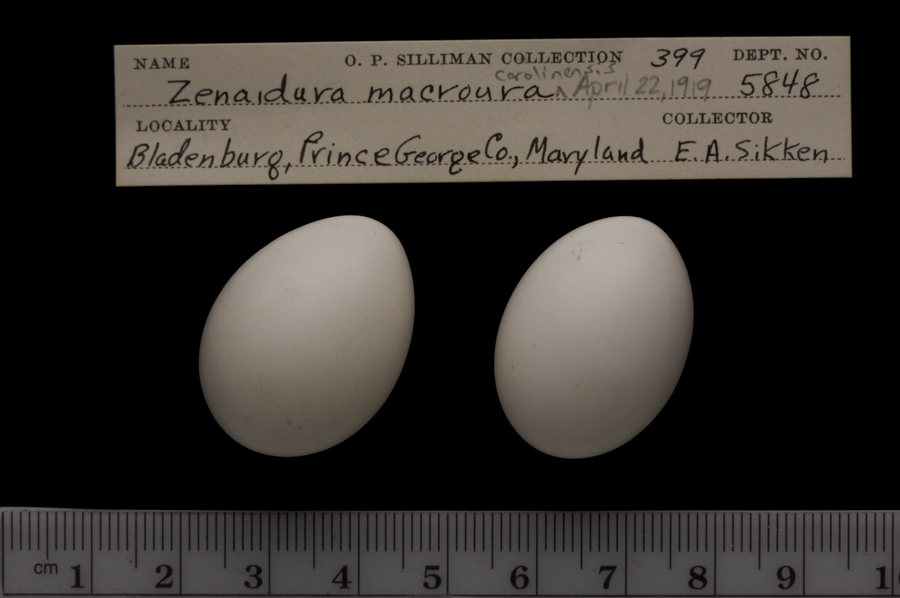 NAME O. P. SILLIMAN COLLECTION 399 DEPT. NO.
carolinensis
Zenaidura macroura ^ April 22, 1919 5848
LOCALITY COLLECTOR
Bladenburg, Prince George Co., Maryland E. A. Sikken
cm 1 2 3 4 5 6 7 8 9 1